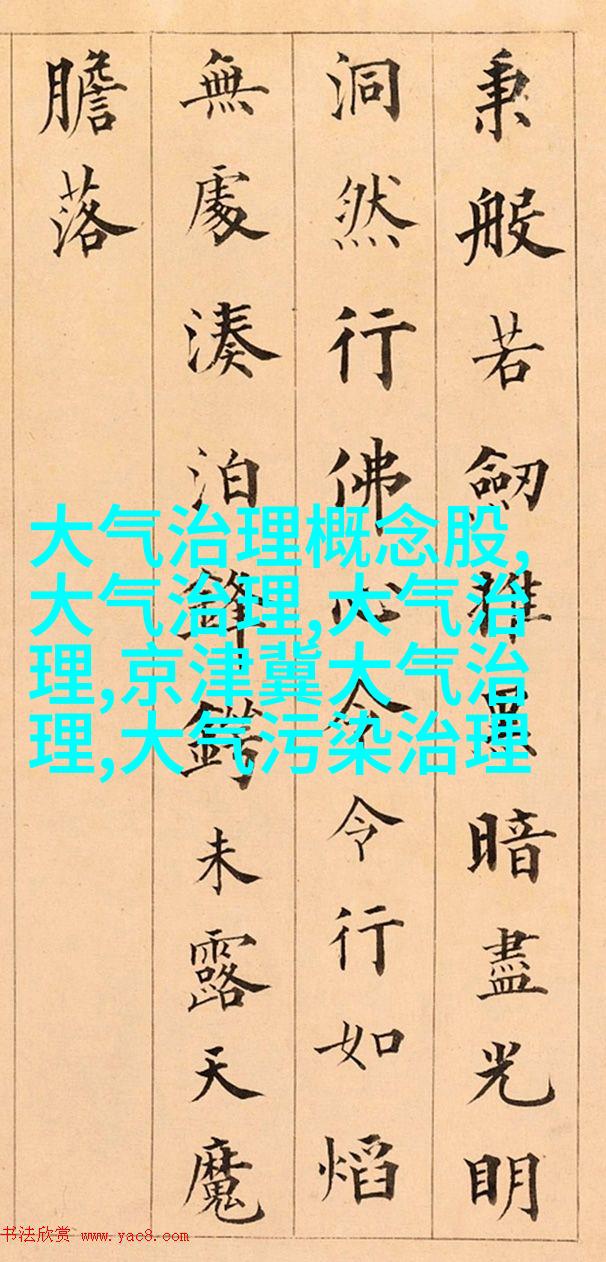 秉般若劒黑暗盡光明
洞然行佛心令令行如熖
無處湊泊鋒鍔未露天魔
膽落
大气治理概念股,
大气治理,大气治
理,京津冀大气治
理,大气污染治理
书法欣赏 www.yac8.com